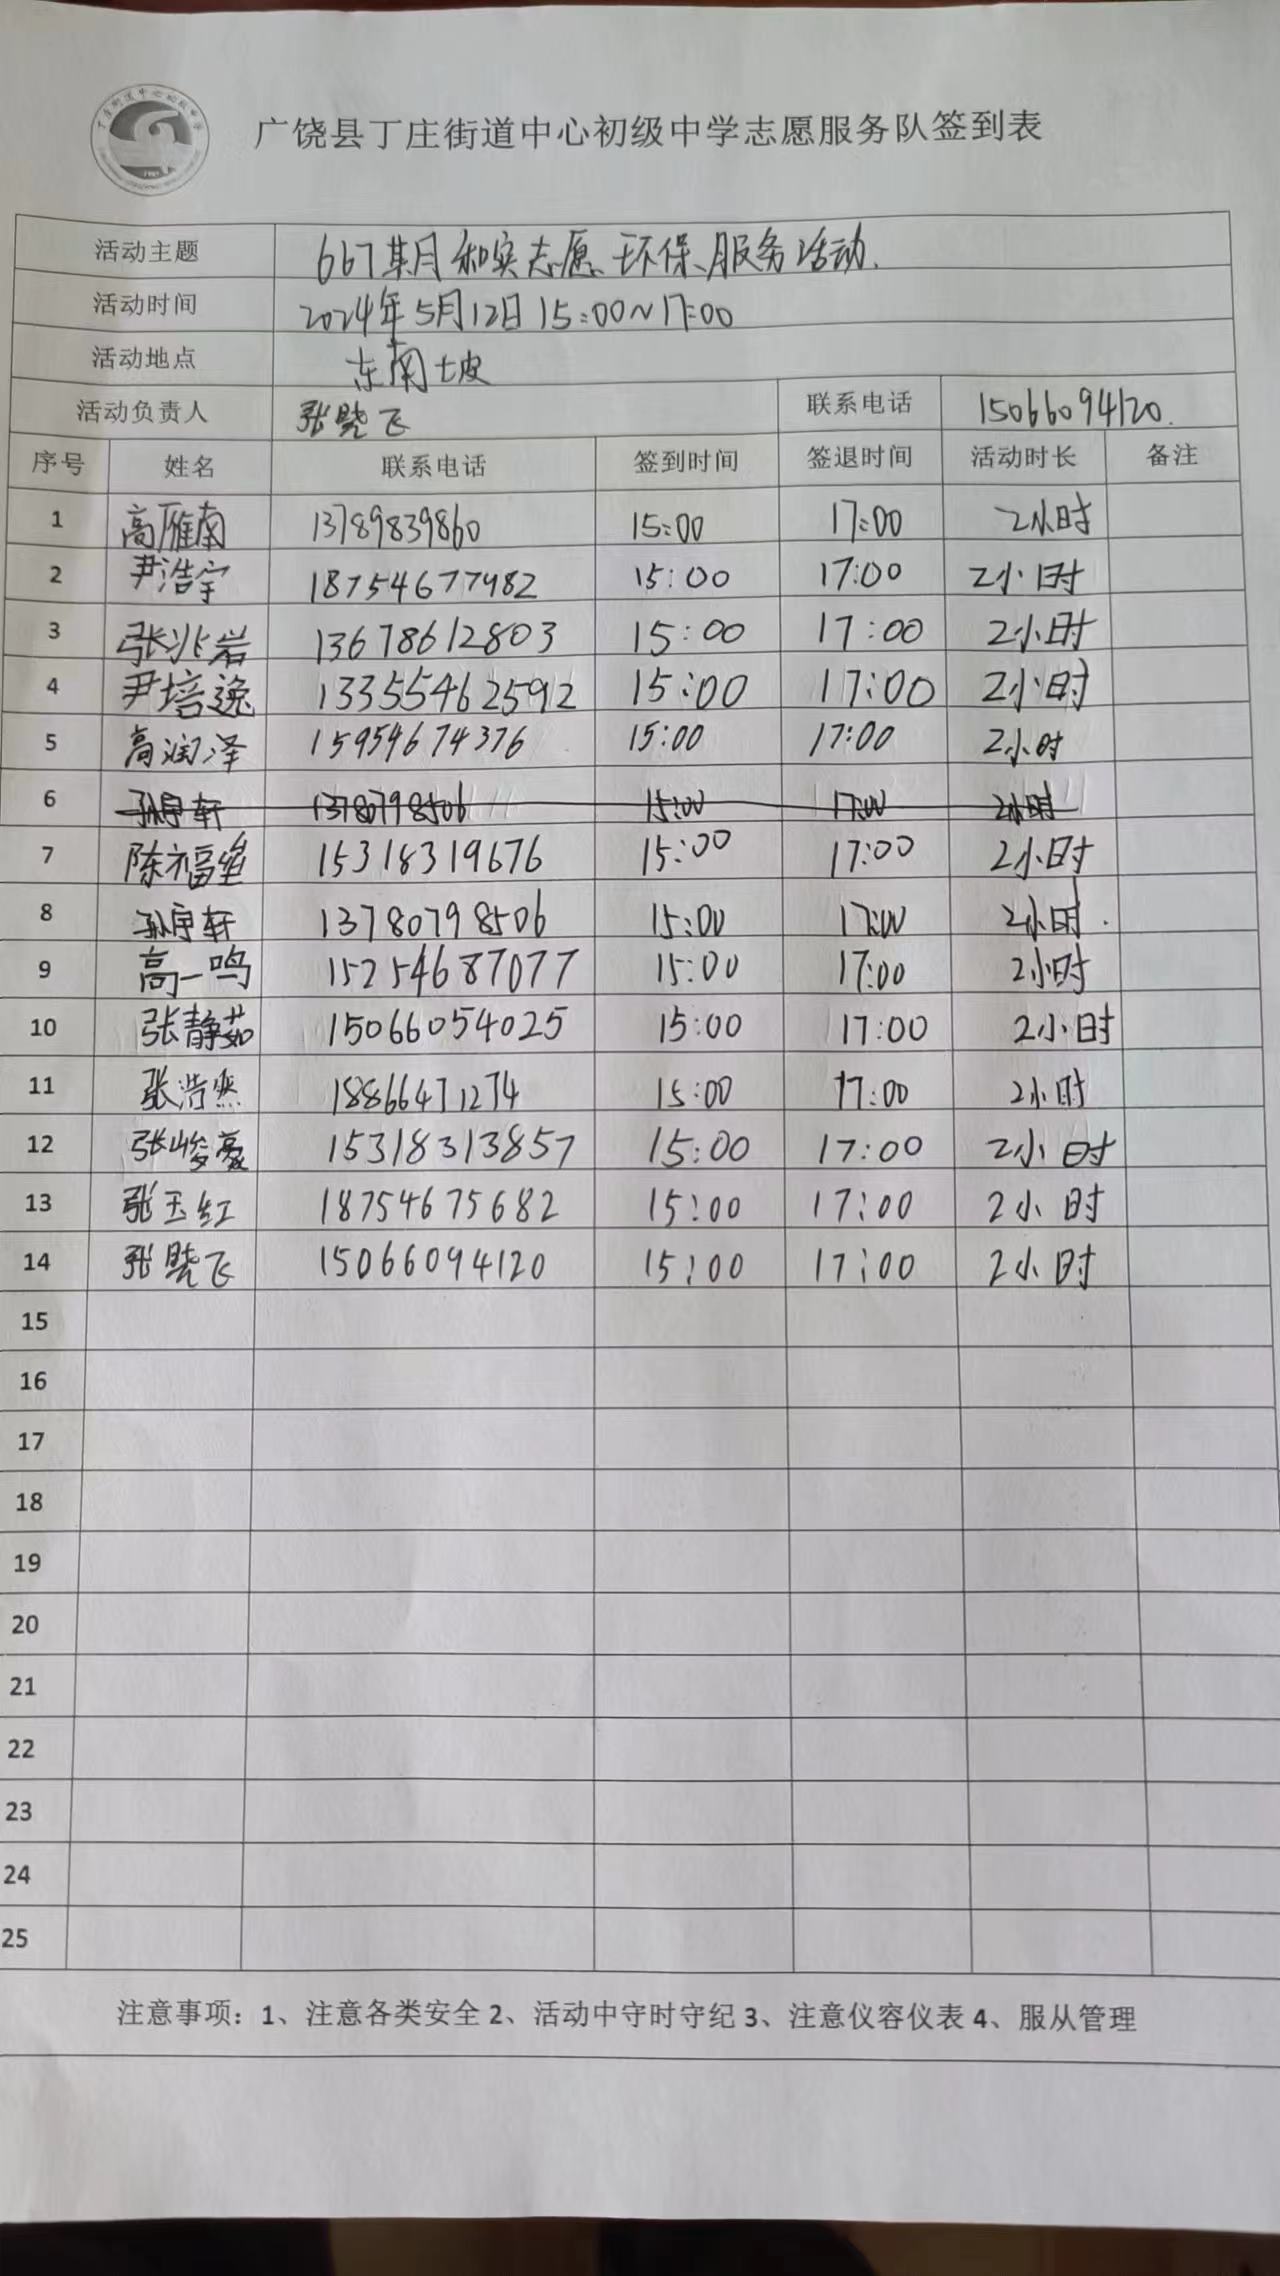 广饶县丁庄街道中心初级中学志愿服务队签到表
活动主题 667期和实志愿、环保、服务活动.
活动时间 2024年5月12日15:00~17:00
活动地点 东南坡
活动负责人 张晓飞 联系电话 15066094120.
序号 姓名 联系电话 签到时间 签退时间 活动时长 备注
1 高雁南 13789839860 15:00 17:00 2小时
2 尹浩宇 18754677982 15:00 17:00 2小时
3 张兆岩 13678612803 15:00 17:00 2小时
4 尹培逸 133554625592 15:00 17:00 2小时
5 高润泽 15954674376 15:00 17:00 2小时
6 孙宇轩 13780798506 15:00 17:00 2小时
7 陈福 15318319676 15:00 17:00 2小时
8 孙宇轩 13780798506 15:00 17:00 2小时.
9 高一鸣 15254687077 15:00 17:00 2小时
10 张静茹 15066054025 15:00 17:00 2小时
11 张浩然 18866471274 15:00 17:00 2小时
12 张峻豪 15318313857 15:00 17:00 2小时
13 张玉红 18754675682 15:00 17:00 2小时
14 张晓飞 15066094120 15:00 17:00 2小时
15
16
17
18
19
20
21
22
23
24
25
注意事项：1、注意各类安全 2、活动中守时守纪 3、注意仪容仪表 4、服从管理